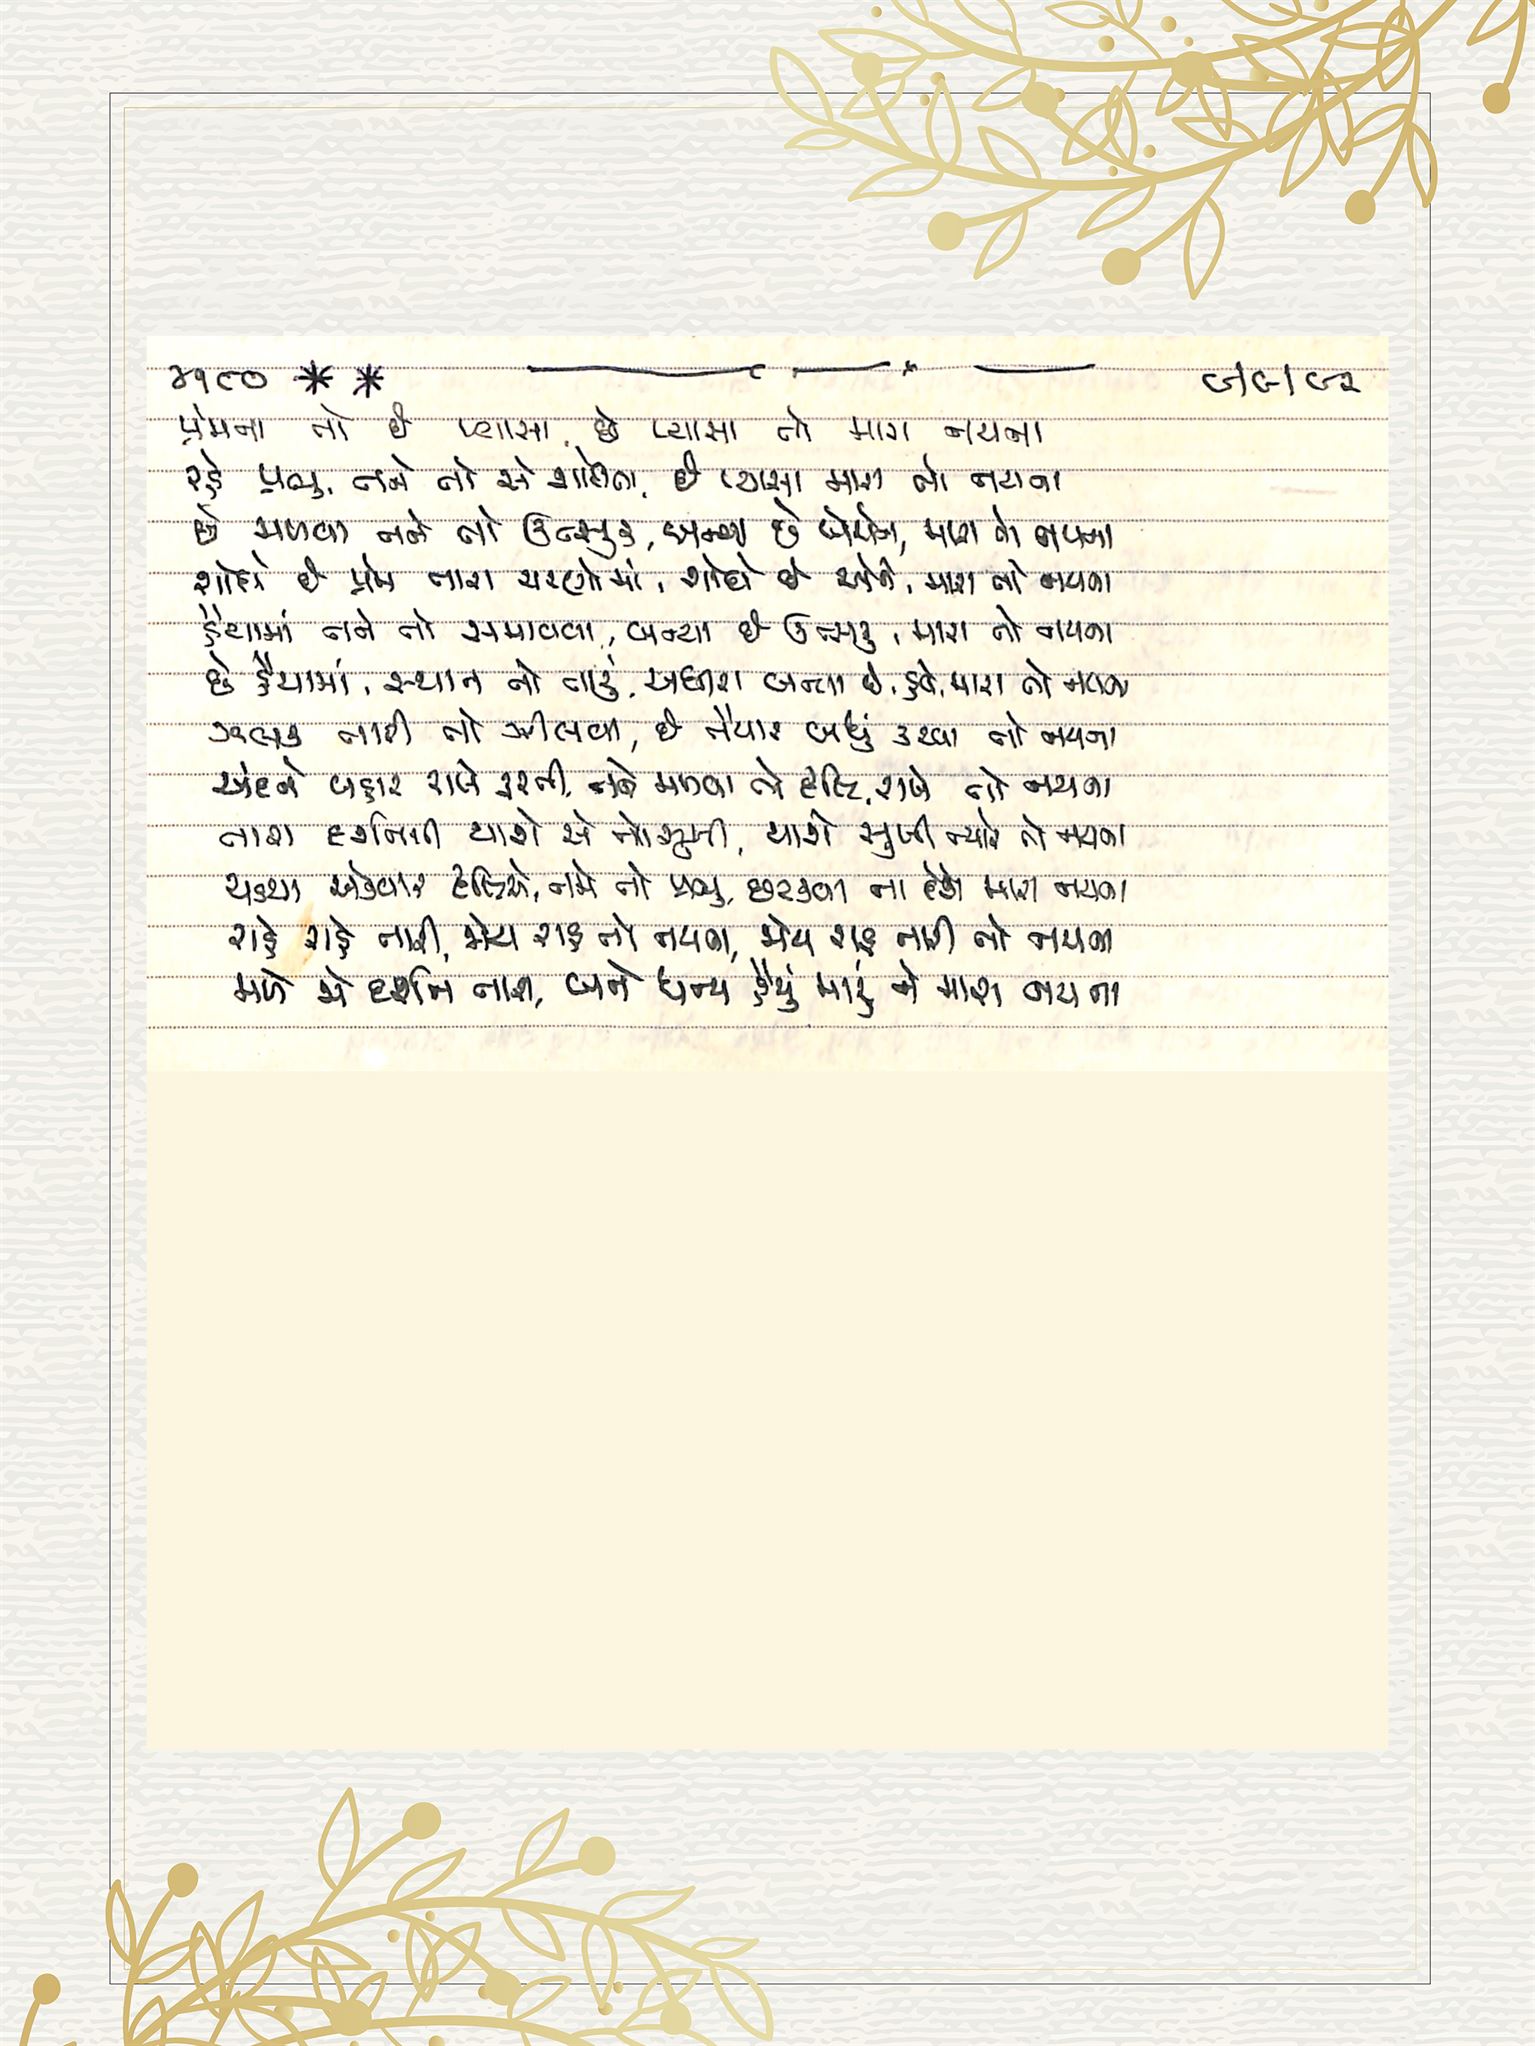 ૪૧૯૦ ** ૯/૯/૯૨
પ્રેમના તો છે પ્યાસા, છે પ્યાસા તો મારા નયના
રહે પ્રભુ, તને તો એ શોધતા, છે પ્યાસા મારા તો નયના
છે મળવા તને તો ઉત્સુક, બન્યા છે બેચેન, મારા તો નયના
શોધે છે પ્રેમ તારા ચરણોમાં, શોધે છે એને, મારા તો નયના
હૈયામાં તને તો સમાવવા, બન્યા છે ઉત્સુક, મારા તો નયના
છે હૈયામાં, સ્થાન તો તારું, અધીરા બન્યા છે, હવે, મારા તો નયના
ઝલક તારી તો ઝીલવા, છે તૈયાર બધું કરવા તો નયના
અંદર બહાર રાખે ફરતી, તને મળવા તો દૃષ્ટિ, રાખે તો નયના
તારા દર્શનથી થાશે એ તો સુખી, થાશે સુખી ત્યારે તો નયના
ચડયા એકવાર દૃષ્ટિએ, તમે તો પ્રભુ, છટકવા ના દેશે મારા નયના
રાહે રાહે તારી, જોય રાહ તો નયના, જોય રાહ તારી તો નયના
મળે જો દર્શન તારા, બને ધન્ય હૈયું મારું ને મારા નયના